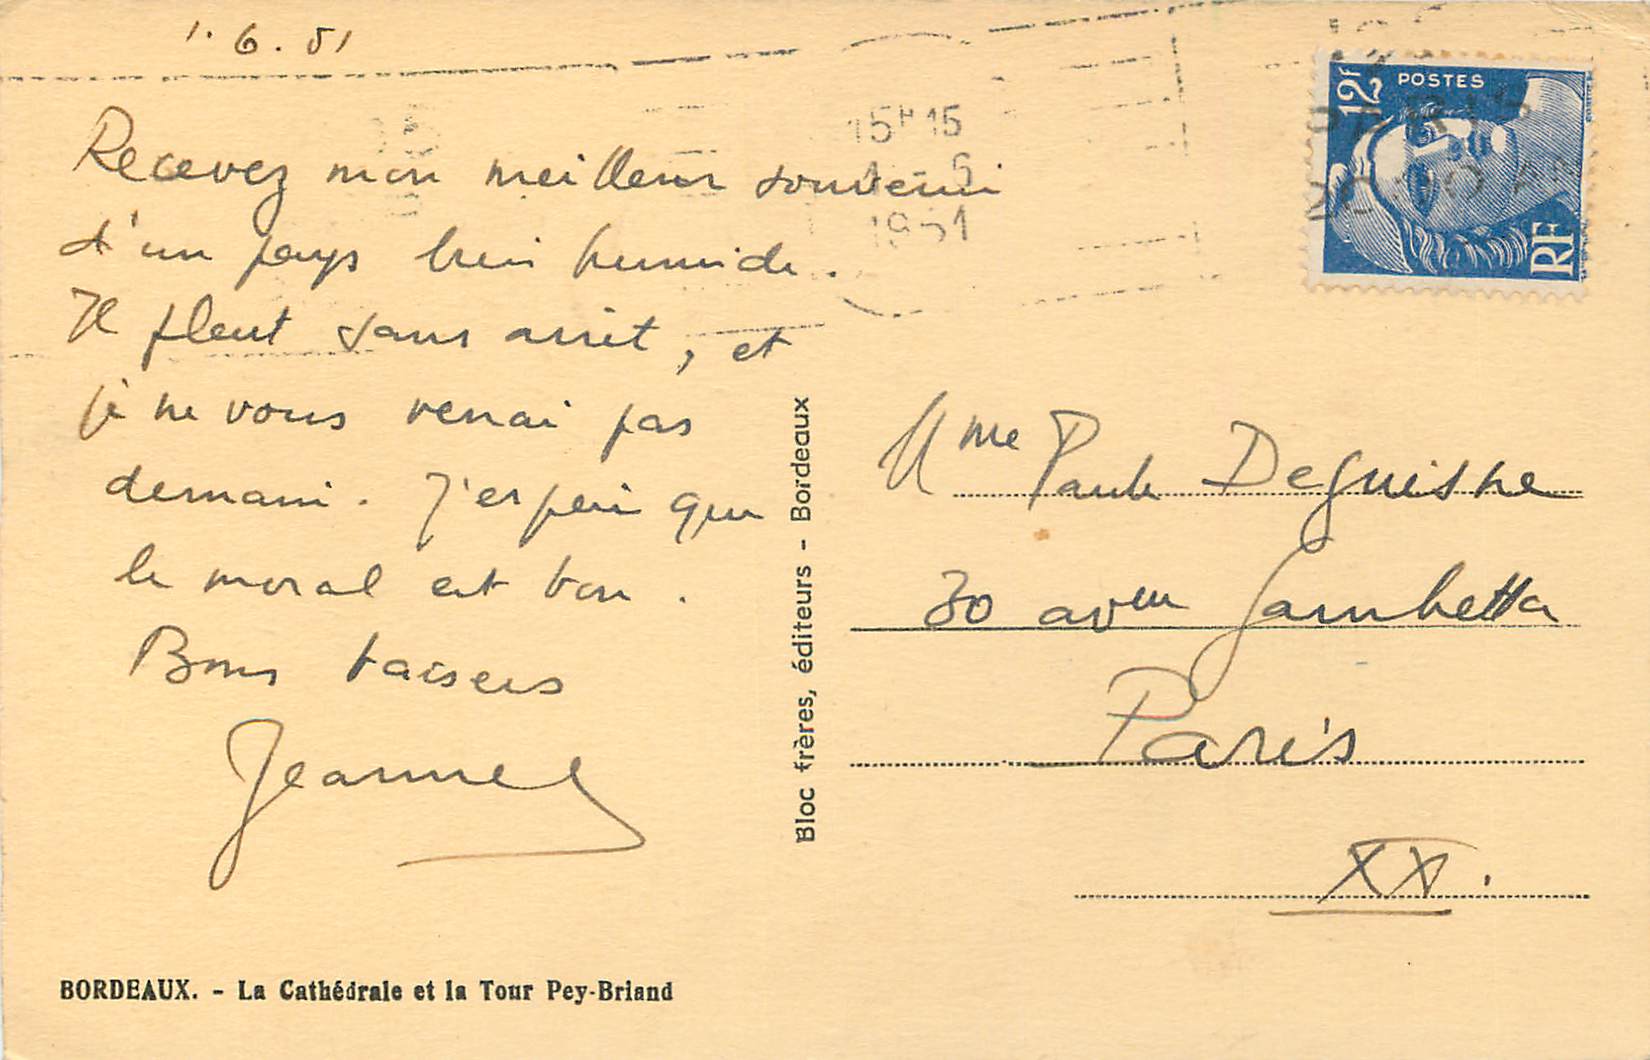 1.6.51
Recevez mon meilleur souvenir
d'un pays bien humide.
Il pleut sans arrêt, et
je ne vous verrai pas
demain. J'espère que
le moral est bon.
Bons baisers
Jeanne
BORDEAUX. - La Cathédrale et la Tour Pey-Briand
Bloc frères, éditeurs - Bordeaux
15H15
1 - 6
1951
POSTES
12F
RF
Mme Paule Deguishe
30 avenue Gambetta
Paris
XX.